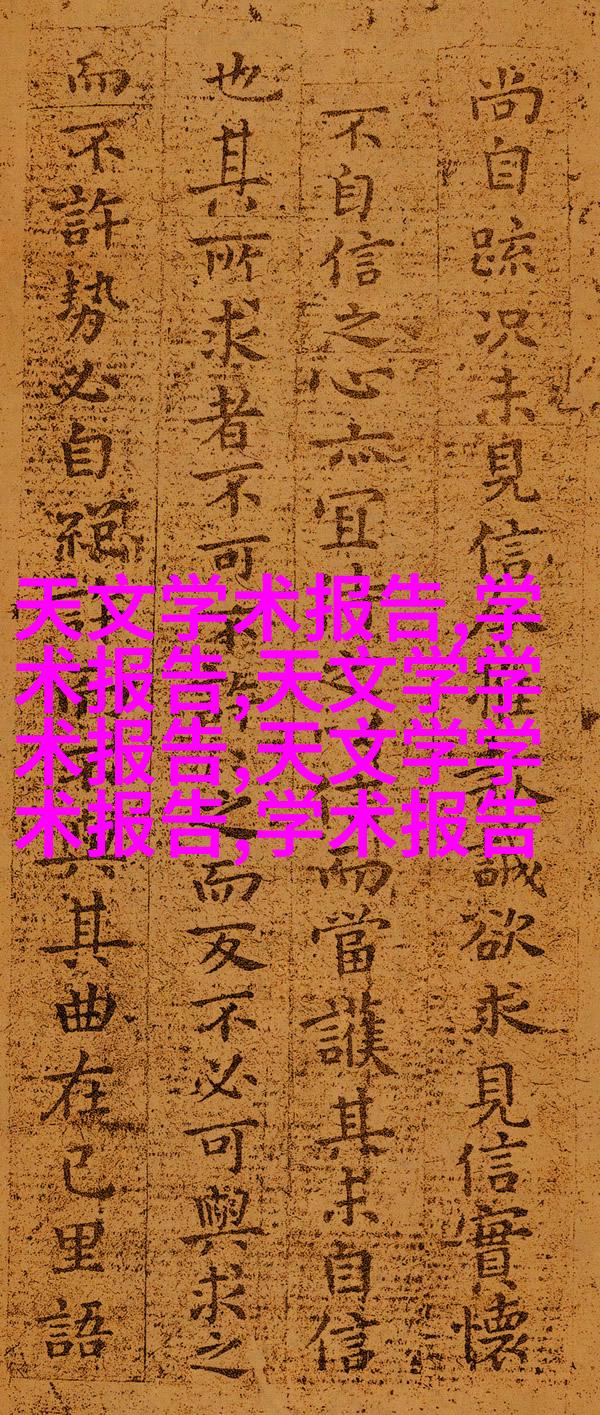 尚自疏况未見信誠欲求見信實懷
不自信之心亦宜而當護其未自信
也其所求者不可之而反不必可與求之
而不許勢必自絕與其曲在己里語
天文学术报告,学
术报告,天文学学
术报告,天文学学
术报告,学术报告